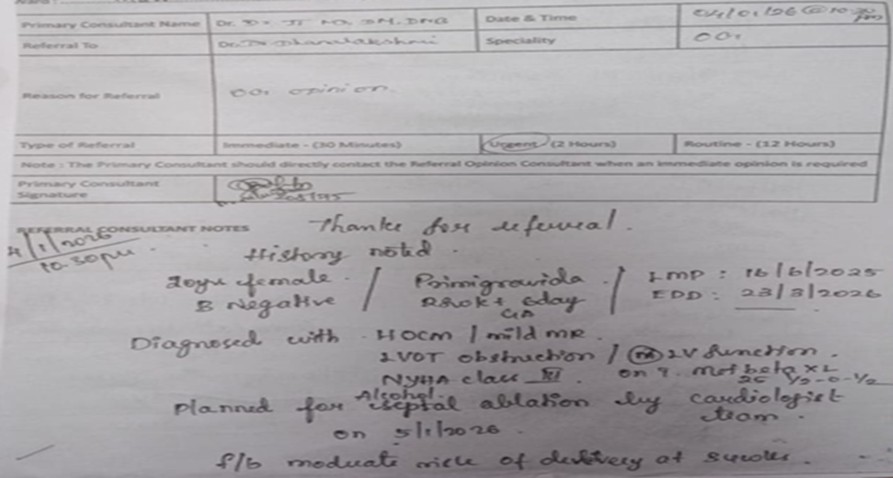 Primary Consultant Name Dr. Date & Time 04/01/26 @ 10.30 pm
Referral To Dr. Dhanalakshmi Speciality OG
Reason for Referral OG opinion
Type of Referral Immediate - (30 Minutes) Urgent (2 Hours) Routine - (12 Hours)
Note : The Primary Consultant should directly contact the Referral Opinion Consultant when an immediate opinion is required
Primary Consultant
Signature
REFERRAL CONSULTANT NOTES Thanks for referral.
4/1/2026
10.30pm
History noted.
female / Primigravida / LMP : 16/6/2025
B Negative 6day EDD : 23/3/2026
GA
Diagnosed with HOCM / mild MR.
LVOT obstruction / LV function.
NYHA class on T. Metbeta XL
25 1/2-0-1/2
Planned for Alcohol septal ablation by cardiologist
team.
on 5/1/2026.
f/b of delivery at